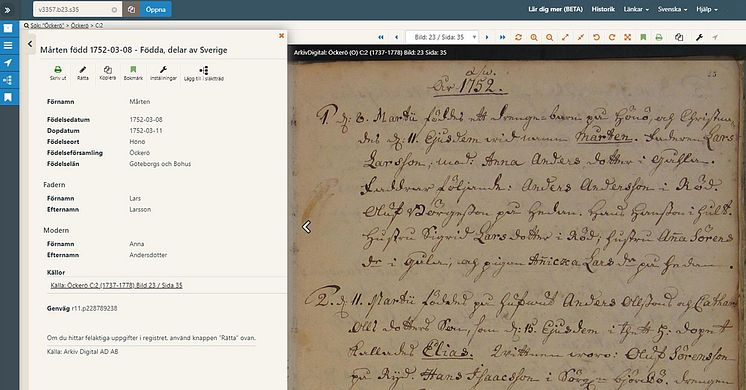 v3357.b23.s35
Öppna
Lär dig mer (BETA)
Historik
Länkar
Svenska
Hjälp
Sök: "Öckerö" > Öckerö > C:2
Bild: 23 Sida: 35
Mårten född 1752-03-08 - Födda, delar av Sverige
ArkivDigital: Öckerö (O) C:2 (1737-1778) Bild: 23 Sida: 35
Skriv ut
Rätta
Kopiera
Bokmärk
Inställningar
Lägg till i släktträd
Förnamn Mårten
Födelsedatum 1752-03-08
Dopdatum 1752-03-11
Födelseort Hönö
Födelseförsamling Öckerö
Födelselän Göteborgs och Bohus
Fadern
Förnamn Lars
Efternamn Larsson
Modern
Förnamn Anna
Efternamn Andersdotter
Källor
Källa: Öckerö C:2 (1737-1778) Bild 23 / Sida 35
Genväg r11.p228789238
Om du hittar felaktiga uppgifter i registret, använd knappen "Rätta" ovan.
Källa: Arkiv Digital AD AB
1752.
1. d: 8. Martii föddes ett drenge-barn på Hönö, och Christna
des d: 11. Ejusdem wid namn Mårten. Faderen Lars
Larsson, mod: Anna Anders dotter i
Faddrar följande: Anders Andersson i Röd.
Oluf Börgesson på Hedan. Hans Hansson i Hult.
Hustru Sigrid Lars dotter i Röd, hustru Aña Sörens
dr i och pigan Añicka Lars dr på Hedan.
2. d. 11. Martii föddes på Anders Ollssons och Cathar.
Olls dotters Son, som d: 15. Ejusdem i dopet
kallades Elias. Wittnen woro: Oluf Sörensson
på Röd. Hans Isaacsson i drengen